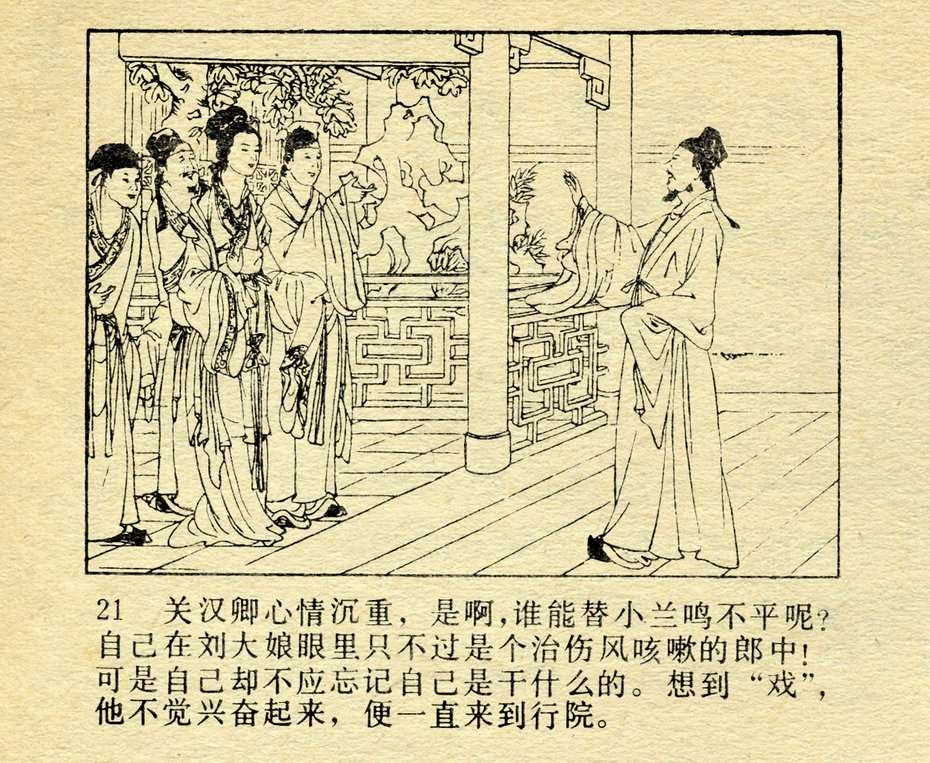 21 关汉卿心情沉重，是啊，谁能替小兰鸣不平呢？
自己在刘大娘眼里只不过是个治伤风咳嗽的郎中！
可是自己却不应忘记自己是干什么的。想到“戏”，
他不觉兴奋起来，便一直来到行院。